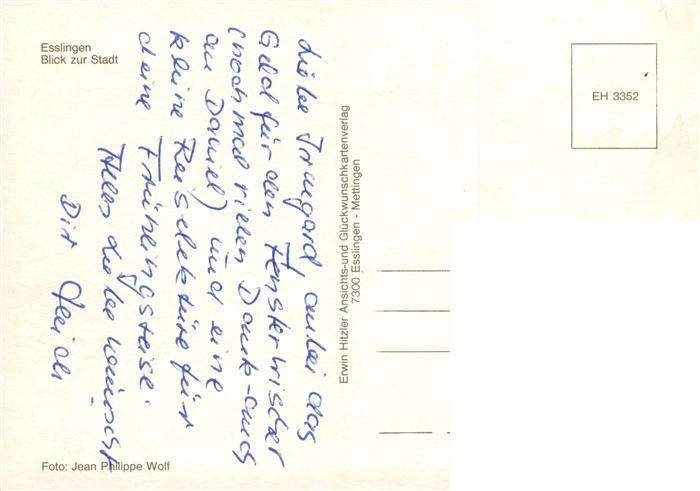 Esslingen
Blick zur Stadt
EH 3352
Liebe Irmgard anbei das
Geld für den Fensterwischer
(nochmal vielen Dank - auch
an Daniel) und eine
kleine Reiselektüre für
deine Frühlingsreise.
Alles Liebe wünscht
Dir
Erwin Hitzler Ansichts-und Glückwunschkartenverlag
7300 Esslingen - Mettingen
Foto: Jean Philippe Wolf